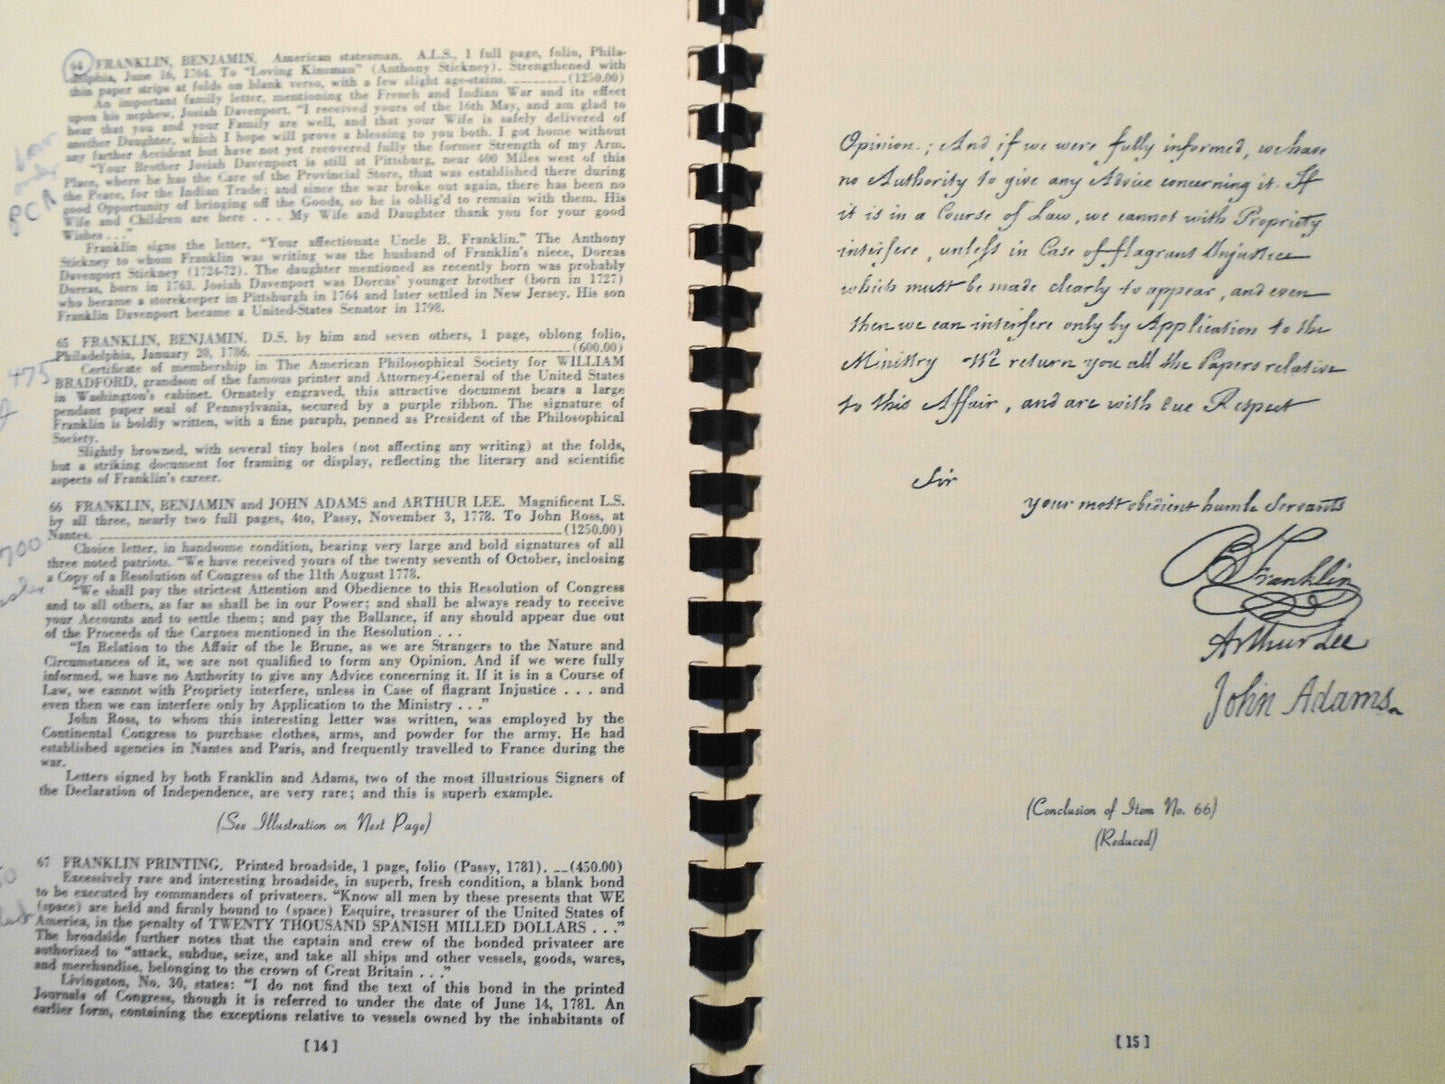 64 FRANKLIN, BENJAMIN. American statesman. A.L.S., 1 full page, folio, Phila-
delphia, June 16, 1764. To “Loving Kinsman” (Anthony Stickney). Strengthened with
thin paper strips at folds on blank verso, with a few slight age-stains. ---------(1250.00)
An important family letter, mentioning the French and Indian War and its effect
upon his nephew, Josiah Davenport. “I received yours of the 16th May, and am glad to
hear that you and your Family are well, and that your Wife is safely delivered of
another Daughter, which I hope will prove a blessing to you both. I got home without
any farther Accident but have not yet recovered fully the former Strength of my Arm.
“Your Brother Josiah Davenport is still at Pittsburg, near 400 Miles west of this
Place, where he has the Care of the Provincial Store, that was established there during
the Peace, for the Indian Trade; and since the war broke out again, there has been no
good Opportunity of bringing off the Goods, so he is oblig’d to remain with them. His
Wife and Children are here . . . My Wife and Daughter thank you for your good
Wishes . . .”
Franklin signs the letter, “Your affectionate Uncle B. Franklin.” The Anthony
Stickney to whom Franklin was writing was the husband of Franklin’s niece, Dorcas
Davenport Stickney (1724-72). The daughter mentioned as recently born was probably
Dorcas, born in 1763. Josiah Davenport was Dorcas’ younger brother (born in 1727)
who became a storekeeper in Pittsburgh in 1764 and later settled in New Jersey. His son
Franklin Davenport became a United-States Senator in 1798.
PCR
65 FRANKLIN, BENJAMIN. D.S. by him and seven others, 1 page, oblong folio,
Philadelphia, January 20, 1786. ---------(600.00)
Certificate of membership in The American Philosophical Society for WILLIAM
BRADFORD, grandson of the famous printer and Attorney-General of the United States
in Washington’s cabinet. Ornately engraved, this attractive document bears a large
pendant paper seal of Pennsylvania, secured by a purple ribbon. The signature of
Franklin is boldly written, with a fine paraph, penned as President of the Philosophical
Society.
Slightly browned, with several tiny holes (not affecting any writing) at the folds,
but a striking document for framing or display, reflecting the literary and scientific
aspects of Franklin’s career.
475
66 FRANKLIN, BENJAMIN and JOHN ADAMS and ARTHUR LEE. Magnificent L.S.
by all three, nearly two full pages, 4to, Passy, November 3, 1778. To John Ross, at
Nantes. ---------(1250.00)
Choice letter, in handsome condition, bearing very large and bold signatures of all
three noted patriots. “We have received yours of the twenty seventh of October, inclosing
a Copy of a Resolution of Congress of the 11th August 1778.
“We shall pay the strictest Attention and Obedience to this Resolution of Congress
and to all others, as far as shall be in our Power; and shall be always ready to receive
your Accounts and to settle them; and pay the Ballance, if any should appear due out
of the Proceeds of the Cargoes mentioned in the Resolution . . .
“In Relation to the Affair of the le Brune, as we are Strangers to the Nature and
Circumstances of it, we are not qualified to form any Opinion. And if we were fully
informed, we have no Authority to give any Advice concerning it. If it is in a Course of
Law, we cannot with Propriety interfere, unless in Case of flagrant Injustice . . . and
even then we can interfere only by Application to the Ministry . . .”
John Ross, to whom this interesting letter was written, was employed by the
Continental Congress to purchase clothes, arms, and powder for the army. He had
established agencies in Nantes and Paris, and frequently travelled to France during the
war.
Letters signed by both Franklin and Adams, two of the most illustrious Signers of
the Declaration of Independence, are very rare; and this is superb example.
(See Illustration on Next Page)
700
67 FRANKLIN PRINTING. Printed broadside, 1 page, folio (Passy, 1781). --(450.00)
Excessively rare and interesting broadside, in superb, fresh condition, a blank bond
to be executed by commanders of privateers. “Know all men by these presents that WE
(space) are held and firmly bound to (space) Esquire, treasurer of the United States of
America, in the penalty of TWENTY THOUSAND SPANISH MILLED DOLLARS . . .”
The broadside further notes that the captain and crew of the bonded privateer are
authorized to “attack, subdue, seize, and take all ships and other vessels, goods, wares,
and merchandise, belonging to the crown of Great Britain . . .”
Livingston, No. 30, states: “I do not find the text of this bond in the printed
Journals of Congress, though it is referred to under the date of June 14, 1781. An
earlier form, containing the exceptions relative to vessels owned by the inhabitants of
[ 14 ]
Opinion.; And if we were fully informed, we have
no Authority to give any Advice concerning it. If
it is in a Course of Law, we cannot with Propriety
interfere, unless in Case of flagrant Injustice
which must be made clearly to appear, and even
then we can interfere only by Application to the
Ministry We return you all the Papers relative
to this Affair, and are with due Respect
Sir
your most obedient humble Servants
B Franklin
Arthur Lee
John Adams.
(Conclusion of Item No. 66)
(Reduced)
[ 15 ]